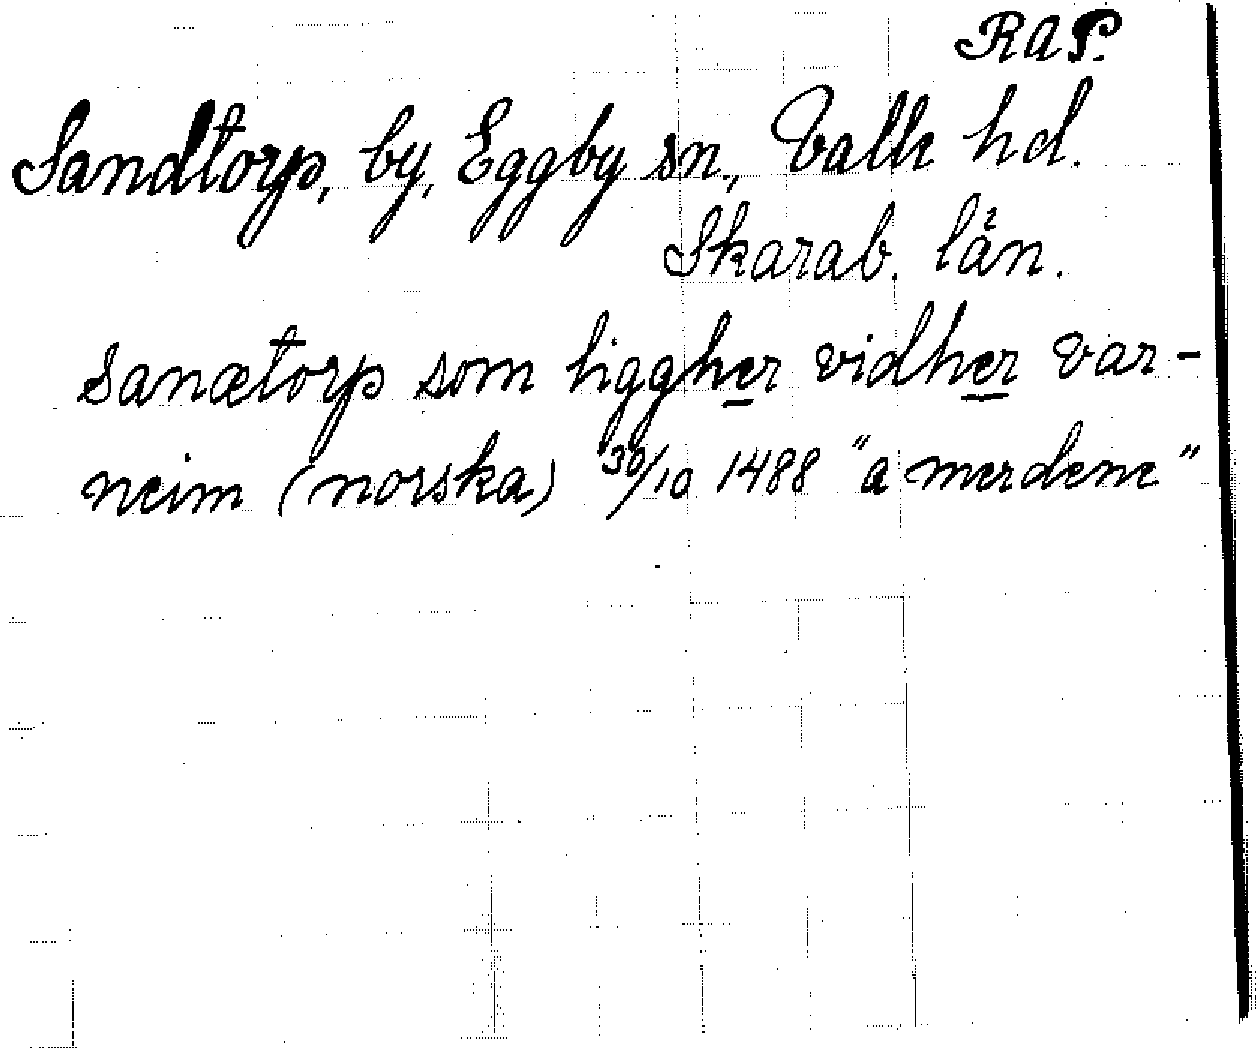 RAP.
Sandtorp, by, Eggby sn., Valle hd.
Skarab. län.
Sanætorp som liggher vidher var-
neim (norska) 30/10 1488 "a merdene"